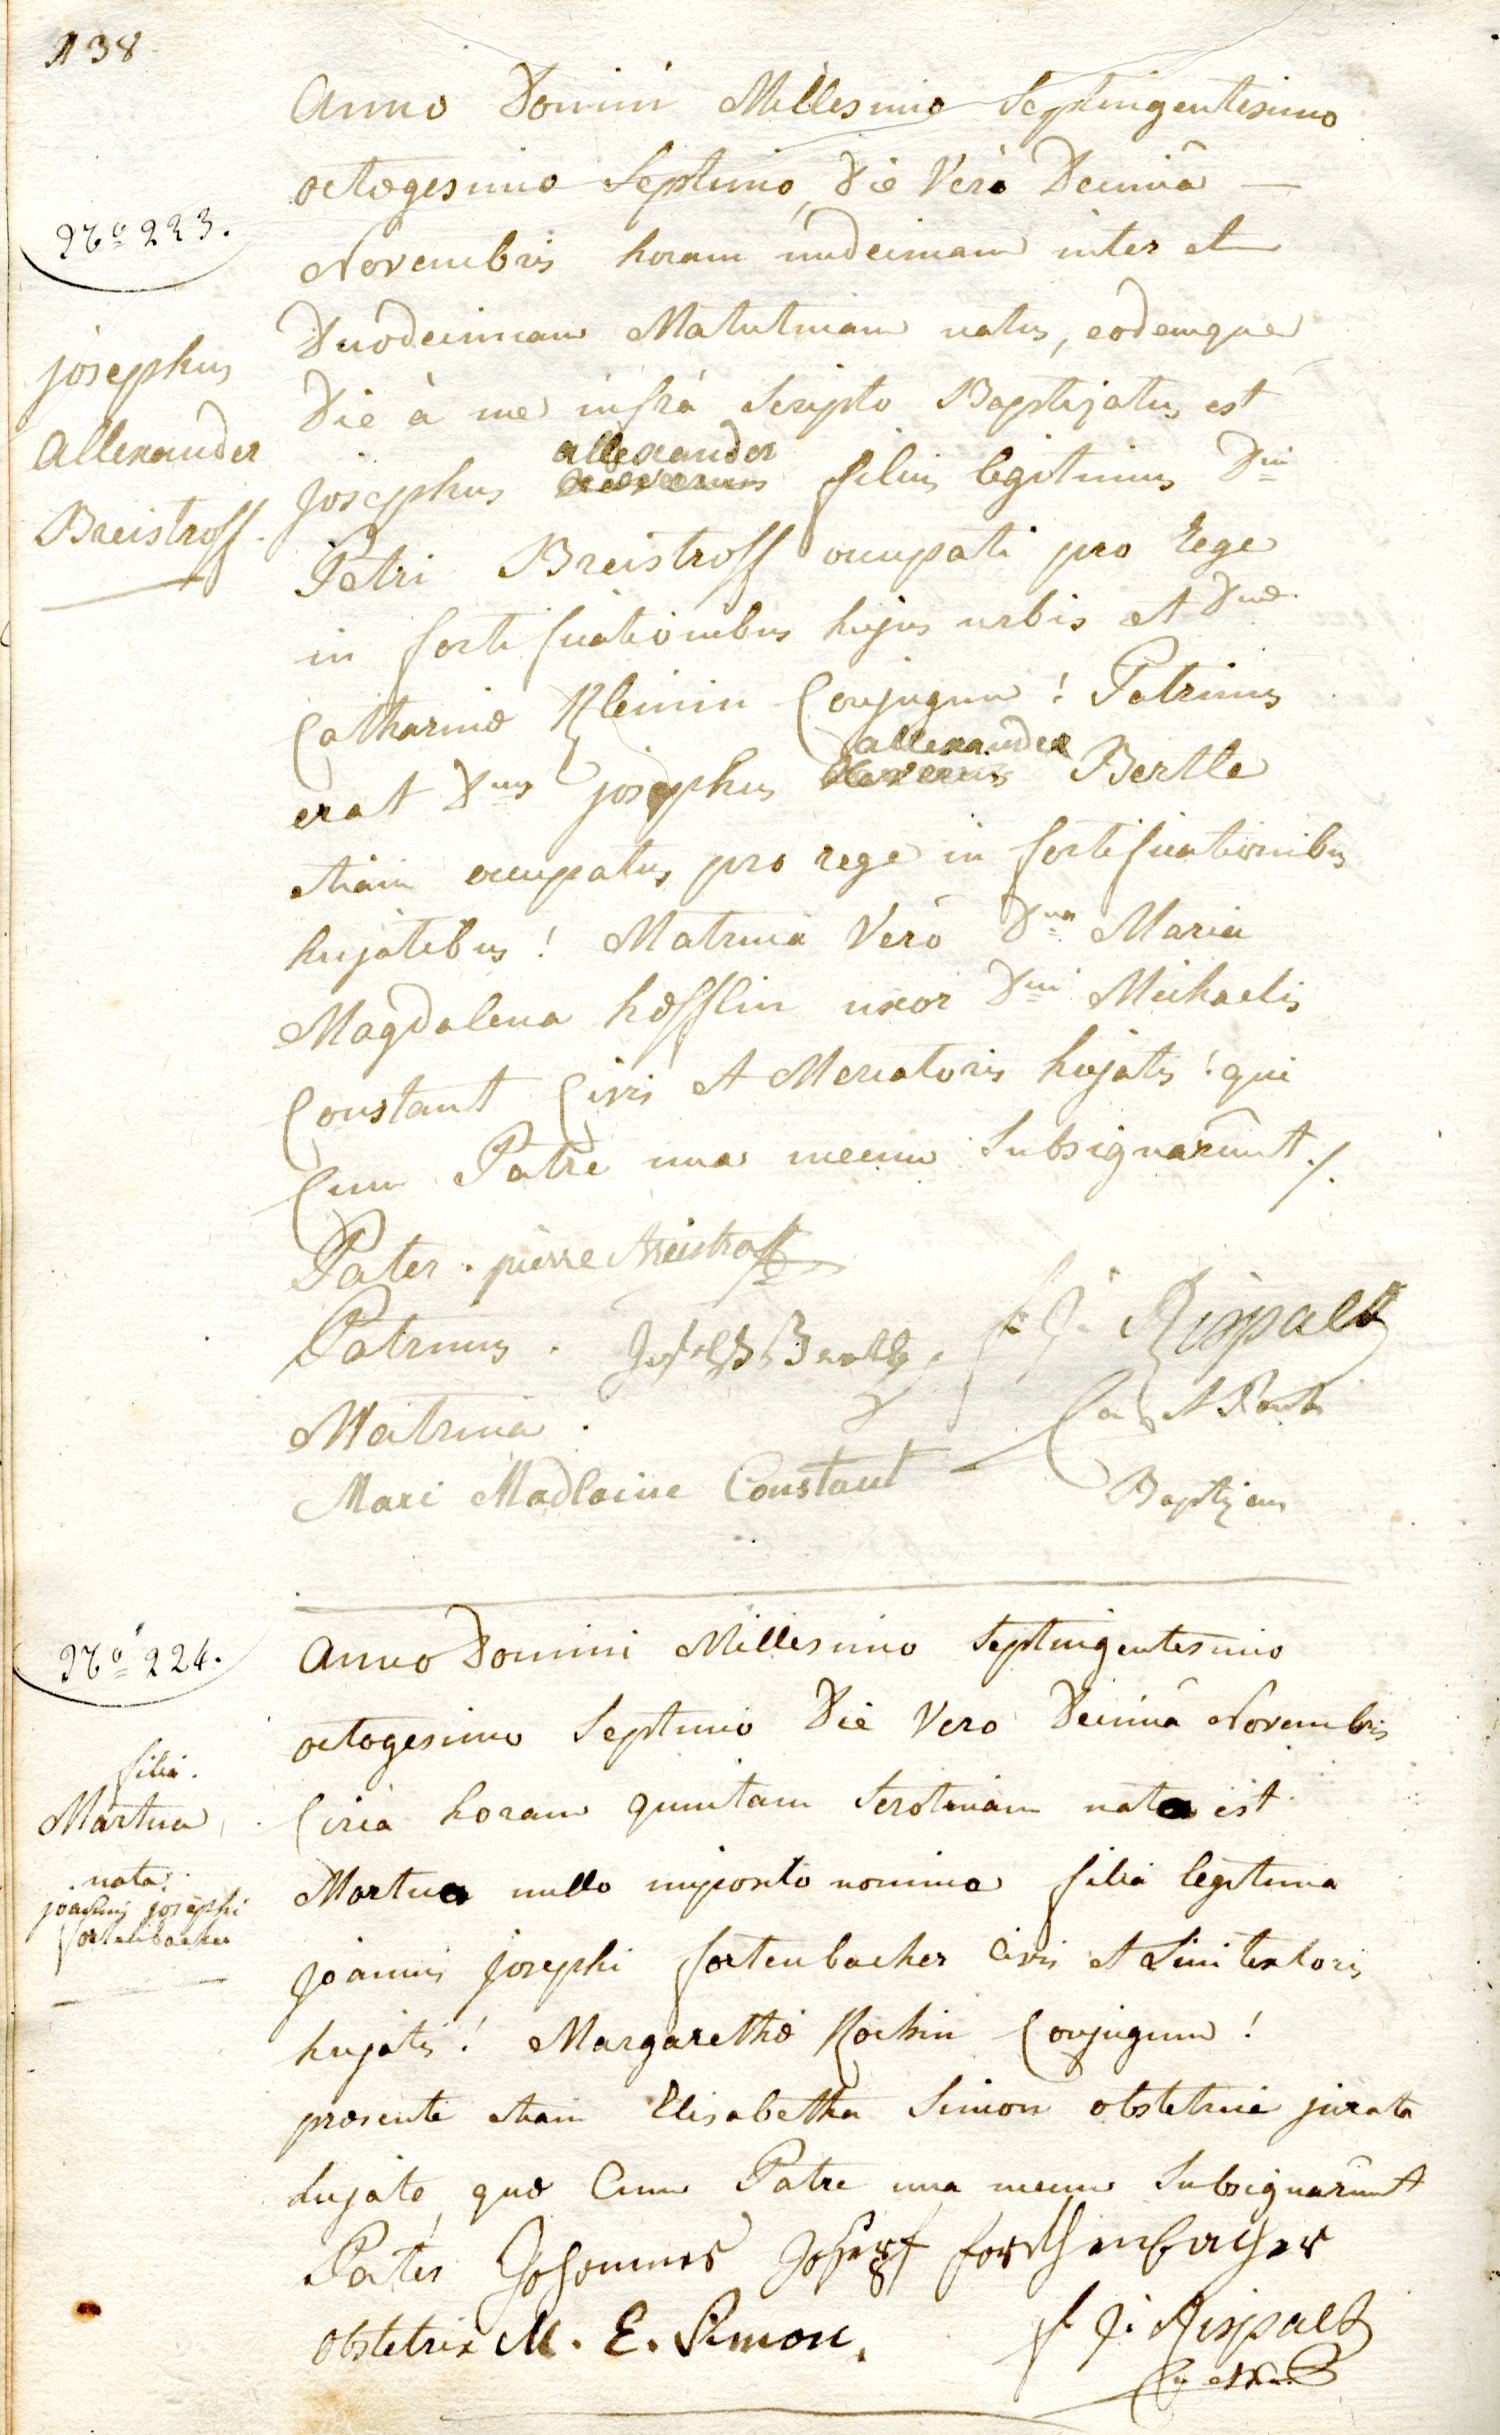 138
Anno Domini Millesimo Septingentesimo
octogesimo Septimo Die Vero Decimâ —
Nº 223.
Novembris horam undecimam inter et
Duodecimam Matutinam natus, eodemque
josephus
Die à me infrà Scripto Baptizatus est
Allexander
allexander
josephus filius legitimus Dni
Breistroff.
Petri Breistroff occupati pro Rege
in fortificationibus hujus urbis et Dnæ
Catharinæ Kleinin Conjugum! Patrinus
allexander
erat Dnus josephus Xaverius Bertle
etiam occupatus pro rege in fortificationibus
hujatibus! Matrina Verò Dna Maria
Magdalena hœfflin uxor Dni Michaelis
Constant Civis et Mercatoris hujatis! qui
Cum Patre una mecum Subsignarunt ./.
Pater . pierre Breistroff
Patrinus . Joseph Bertle f. j. Rispald
Matrina .
Mari Madlaine Constant
Baptizans
Nº 224.
Anno Domini Millesimo Septingentesimo
octogesimo Septimo Die Vero Decimâ Novembris
filia.
Circà horam quintam Serotinam nata est
Mortua
nata.
Mortua nullo imposito nomine filia legitima
joannis josephi
fortenbacher
joannis josephi fortenbacher Civis et Linitextoris
hujatis! Margarethæ Kochin Conjugum!
præsente etiam Elisabetha Simon obstetrice jurata
hujate, quæ Cum Patre una mecum Subsignarunt
Pater Johannes Joseph forthenbacher
obstetrix M. E. Simon. f. j. Rispald